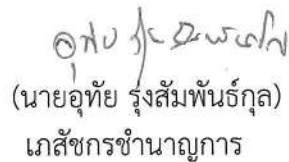 (นายอุทัย รุ่งสัมพันธ์กุล)
เภสัชกรชำนาญการ